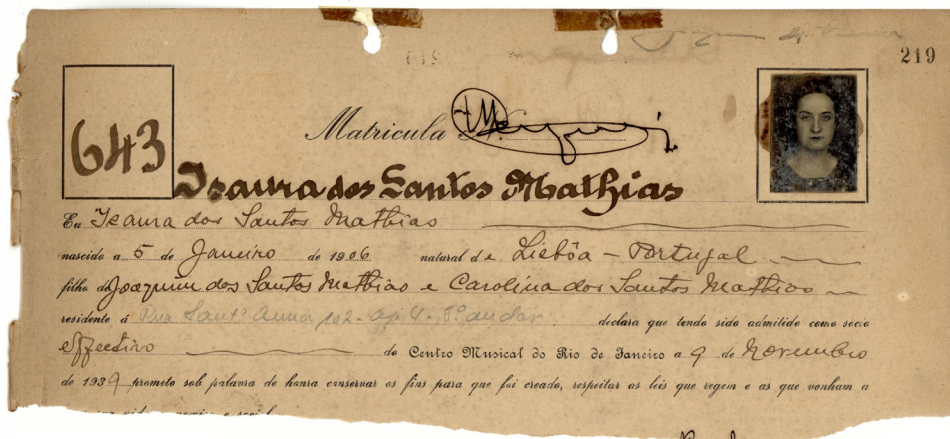 219
643
Matricula N.
Isaura dos Santos Mathias
Eu Isaura dos Santos Mathias
nascido a 5 de Janeiro de 1906 natural de Lisbôa - Portugal
filho de Joaquim dos Santos Mathias e Carolina dos Santos Mathias
residente á Rua Sant' Anna 102 - ap 4 - 3º andar. declara que tendo sido admitido como socio
effectivo do Centro Musical do Rio de Janeiro a 9 de Novembro
de 1939 prometo sob palavra de honra conservar os fins para que foi creado, respeitar as leis que regem e as que venham a